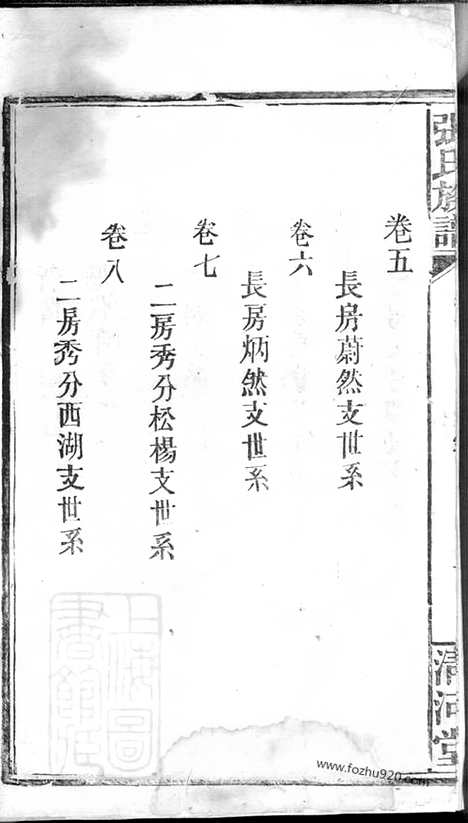 張氏族譜
卷五
長房蔚然支世系
卷六
長房炳然支世系
卷七
二房秀分松楊支世系
卷八
二房秀分西湖支世系
清河堂
上海圖書館藏
www.fozhu920.com